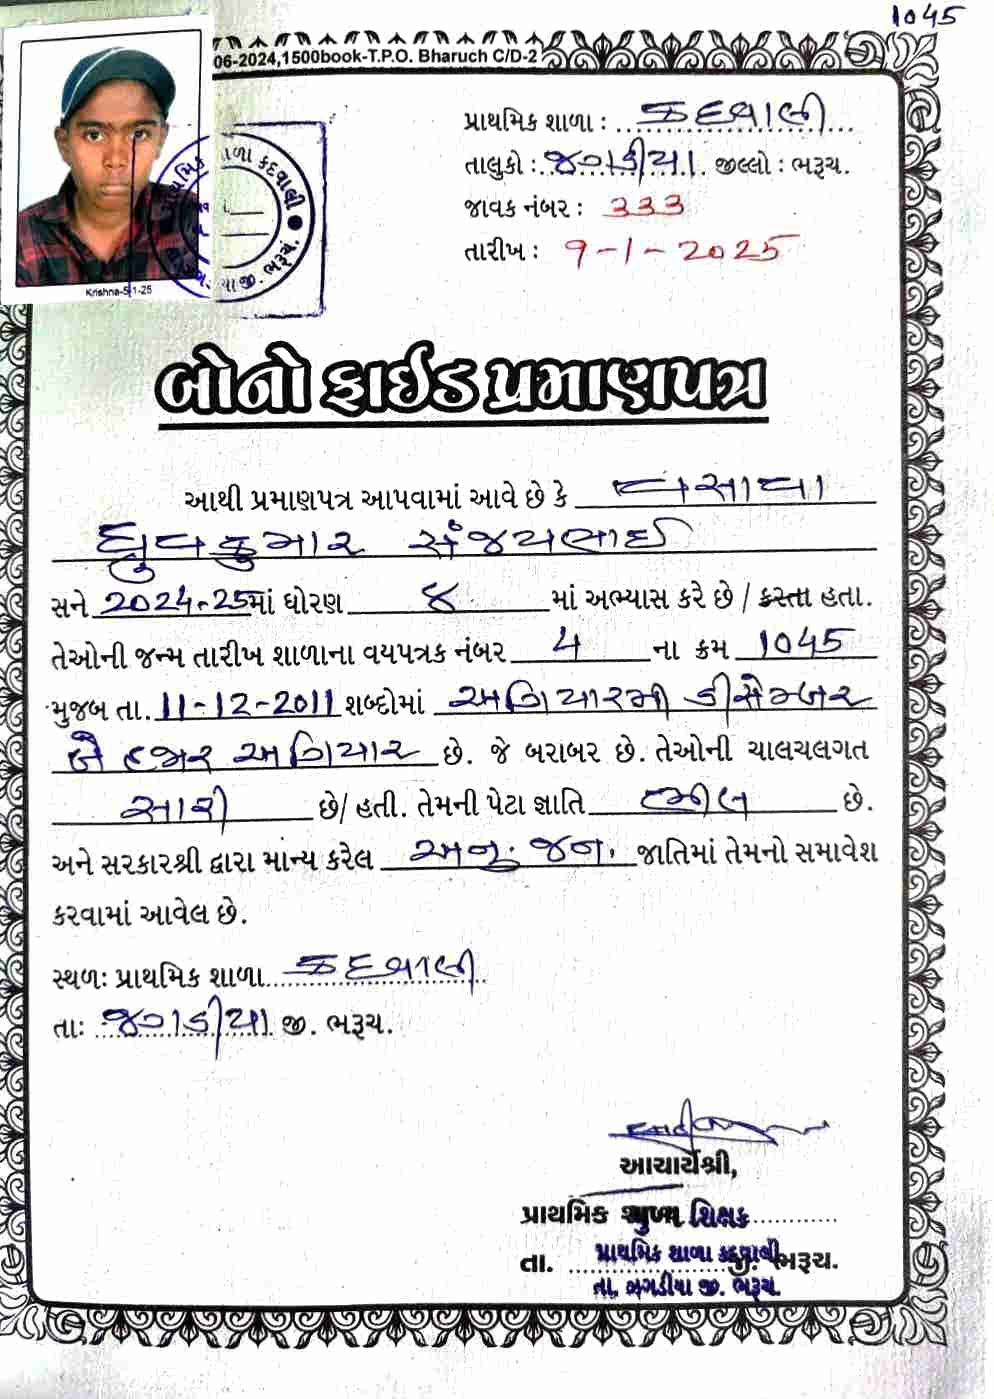 1045
06-2024,1500book-T.P.O. Bharuch C/D-2
પ્રાથમિક શાળા : કદવાલી
તાલુકો : ઝગડીયા જીલ્લો : ભરૂચ.
જાવક નંબર : 333
તારીખ : 9-1-2025
પ્રાથમિક શાળા કદવાલી
તા. જી. ભરૂચ.
Krishna-5-1-25
બોનોફાઈડ પ્રમાણપત્ર
આથી પ્રમાણપત્ર આપવામાં આવે છે કે વસાવા
ધ્રુવકુમાર સંજયભાઈ
સને 2024-25માં ધોરણ ૪ માં અભ્યાસ કરે છે / કરતા હતા.
તેઓની જન્મ તારીખ શાળાના વયપત્રક નંબર 4 ના ક્રમ 1045
મુજબ તા. 11-12-2011 શબ્દોમાં અગિયારમી ડીસેમ્બર
બે હજાર અગિયાર છે. જે બરાબર છે. તેઓની ચાલચલગત
સારી છે/ હતી. તેમની પેટા જ્ઞાતિ ભીલ છે.
અને સરકારશ્રી દ્વારા માન્ય કરેલ અનુ. જન. જાતિમાં તેમનો સમાવેશ
કરવામાં આવેલ છે.
સ્થળઃ પ્રાથમિક શાળા કદવાલી
તાઃ ઝગડીયા જી. ભરૂચ.
આચાર્યશ્રી,
પ્રાથમિક મુખ્ય શિક્ષક
પ્રાથમિક શાળા કદવાલી
તા. જી. ભરૂચ.
તા. ઝગડીયા જી. ભરૂચ.